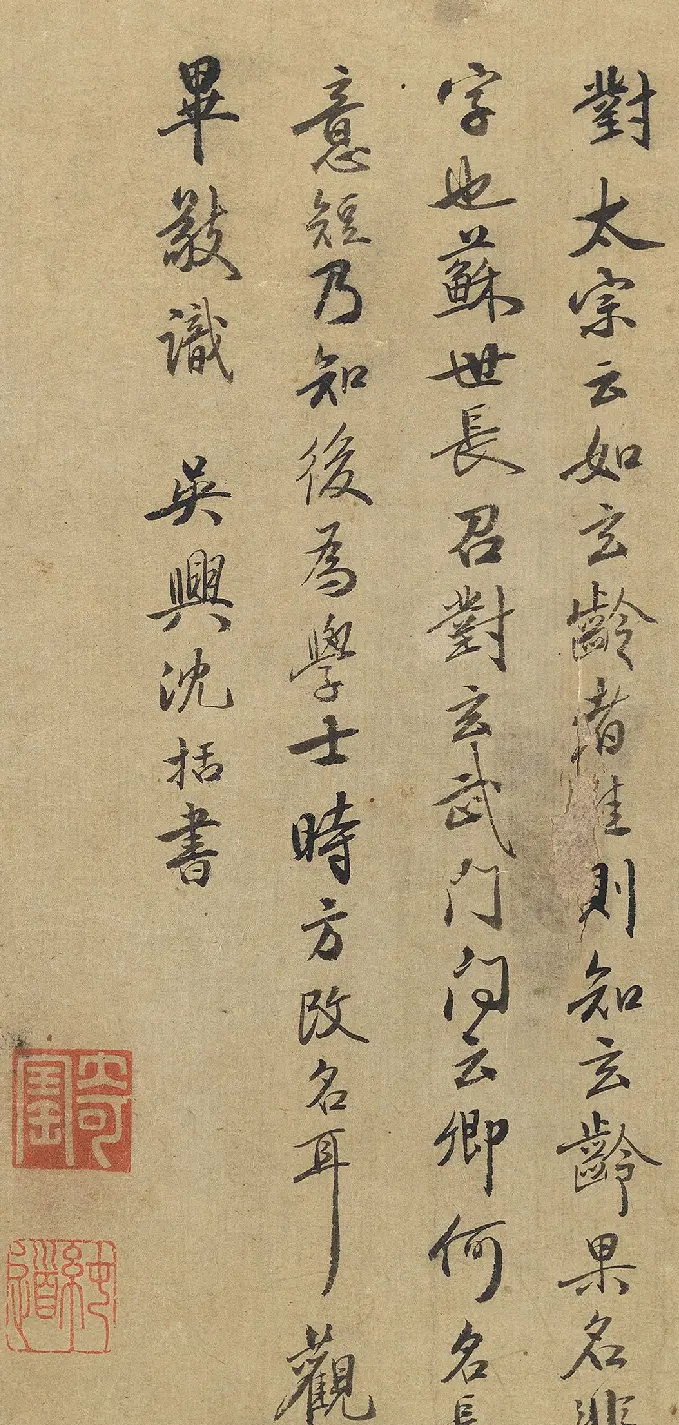 對太宗云如玄齡者唯則知玄齡果名非
字也蘇世長召對玄武門問云卿何名長
意短乃知後為學士時方改名耳觀
畢敬識 吳興沈括書